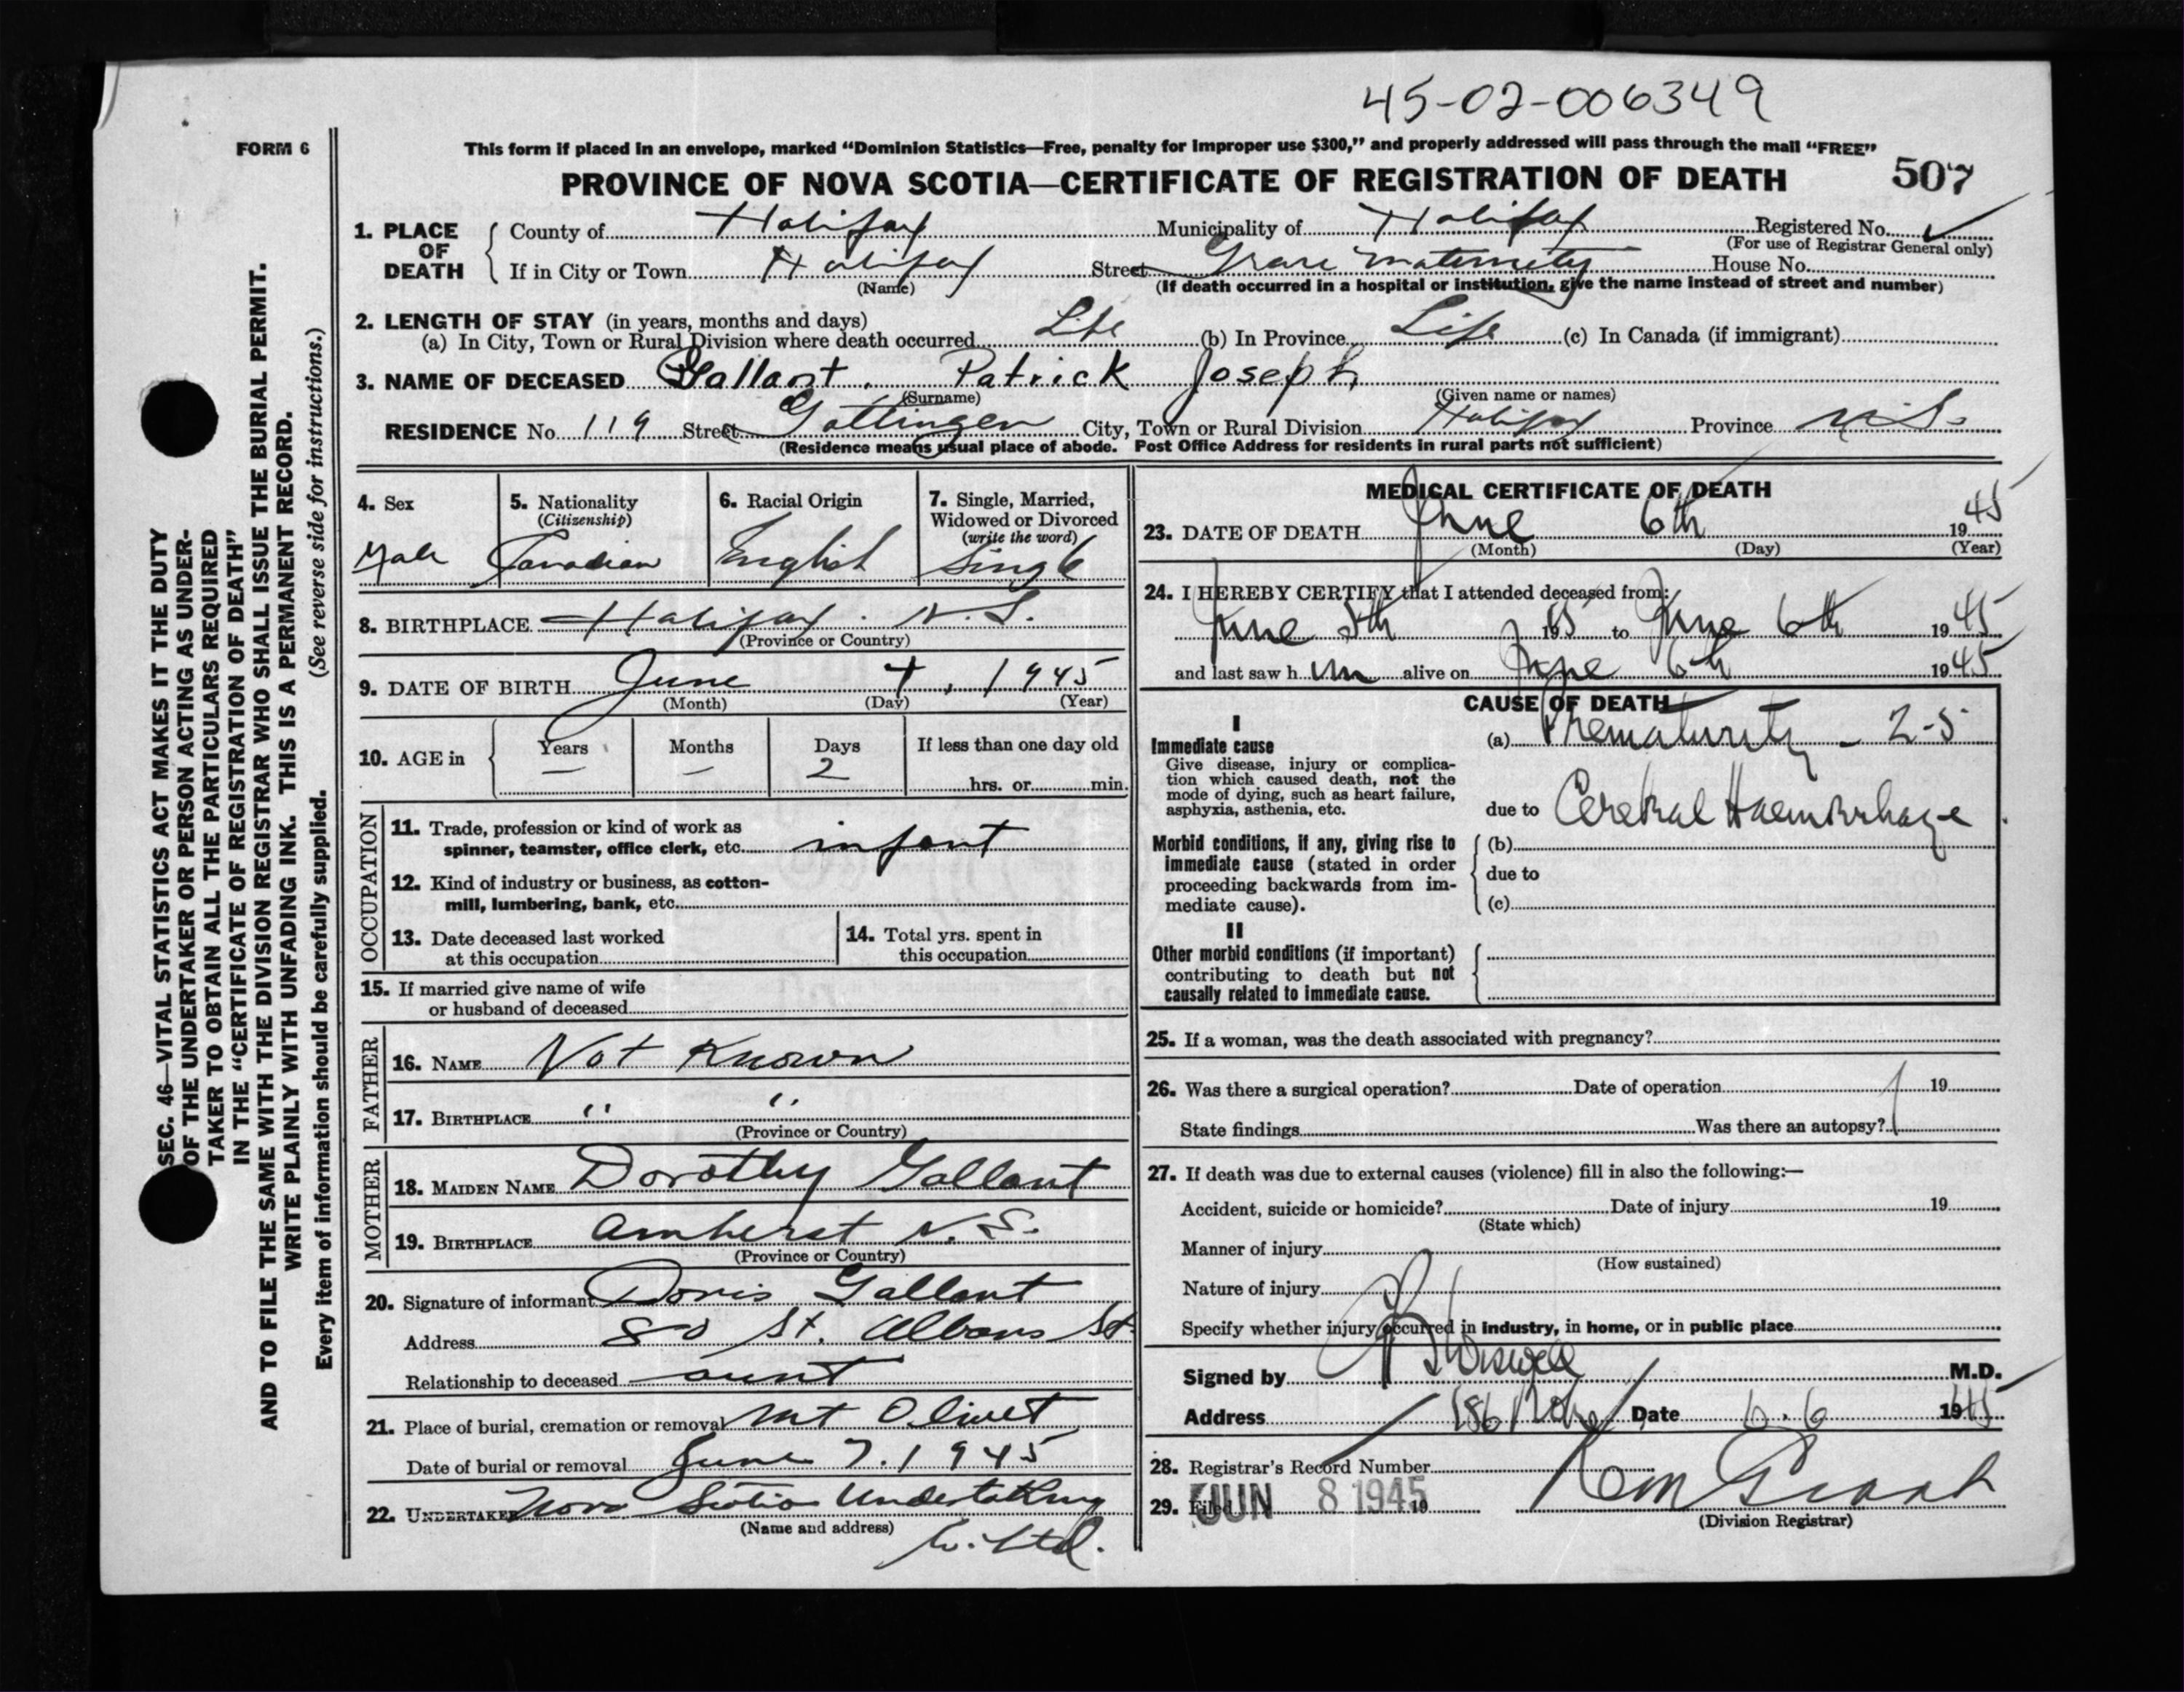 45-02-006349
FORM 6
This form if placed in an envelope, marked “Dominion Statistics—Free, penalty for improper use $300,” and properly addressed will pass through the mail “FREE”
PROVINCE OF NOVA SCOTIA—CERTIFICATE OF REGISTRATION OF DEATH 507
1. PLACE OF DEATH
County of Halifax Municipality of Halifax Registered No.
(For use of Registrar General only)
If in City or Town Halifax Street Grace Maternity House No.
(Name) (If death occurred in a hospital or institution, give the name instead of street and number)
2. LENGTH OF STAY (in years, months and days)
(a) In City, Town or Rural Division where death occurred Life (b) In Province Life (c) In Canada (if immigrant)
3. NAME OF DECEASED Gallant. Patrick Joseph
(Surname) (Given name or names)
RESIDENCE No. 119 Street Gottingen City, Town or Rural Division Halifax Province N.S.
(Residence means usual place of abode. Post Office Address for residents in rural parts not sufficient)
4. Sex
Male
5. Nationality
(Citizenship)
Canadian
6. Racial Origin
English
7. Single, Married,
Widowed or Divorced
(write the word)
Single
8. BIRTHPLACE Halifax. N.S.
(Province or Country)
9. DATE OF BIRTH June 4, 1945
(Month) (Day) (Year)
10. AGE in
Years Months Days If less than one day old
— — 2 hrs. or min.
OCCUPATION
11. Trade, profession or kind of work as
spinner, teamster, office clerk, etc. infant
12. Kind of industry or business, as cotton-
mill, lumbering, bank, etc.
13. Date deceased last worked
at this occupation
14. Total yrs. spent in
this occupation
15. If married give name of wife
or husband of deceased
FATHER
16. NAME Not Known
17. BIRTHPLACE " "
(Province or Country)
MOTHER
18. MAIDEN NAME Dorothy Gallant
19. BIRTHPLACE Amherst N.S.
(Province or Country)
20. Signature of informant Doris Gallant
Address 80 St. Albans St
Relationship to deceased aunt
21. Place of burial, cremation or removal Mt Olivet
Date of burial or removal June 7. 1945
22. UNDERTAKER Nova Scotia Undertaking
(Name and address)
Co. Ltd.
MEDICAL CERTIFICATE OF DEATH
23. DATE OF DEATH June 6th 1945
(Month) (Day) (Year)
24. I HEREBY CERTIFY that I attended deceased from:
June 5th 1945 to June 6th 1945
and last saw him alive on June 6th 1945
CAUSE OF DEATH
I
Immediate cause
Give disease, injury or complica-
tion which caused death, not the
mode of dying, such as heart failure,
asphyxia, asthenia, etc.
(a) Prematurity - 2-5
due to Cerebral Haemorrhage
Morbid conditions, if any, giving rise to
immediate cause (stated in order
proceeding backwards from im-
mediate cause).
(b)
due to
(c)
II
Other morbid conditions (if important)
contributing to death but not
causally related to immediate cause.
25. If a woman, was the death associated with pregnancy?
26. Was there a surgical operation? Date of operation 19
State findings Was there an autopsy?
27. If death was due to external causes (violence) fill in also the following:—
Accident, suicide or homicide? Date of injury 19
(State which)
Manner of injury
(How sustained)
Nature of injury
Specify whether injury occurred in industry, in home, or in public place
Signed by Wiswell M.D.
Address 186 Date 6.6 1945
28. Registrar's Record Number
29. Filed JUN 8 1945 19
(Division Registrar)
SEC. 46—VITAL STATISTICS ACT MAKES IT THE DUTY
OF THE UNDERTAKER OR PERSON ACTING AS UNDER-
TAKER TO OBTAIN ALL THE PARTICULARS REQUIRED
IN THE “CERTIFICATE OF REGISTRATION OF DEATH”
AND TO FILE THE SAME WITH THE DIVISION REGISTRAR WHO SHALL ISSUE THE BURIAL PERMIT.
WRITE PLAINLY WITH UNFADING INK. THIS IS A PERMANENT RECORD.
Every item of information should be carefully supplied. (See reverse side for instructions.)